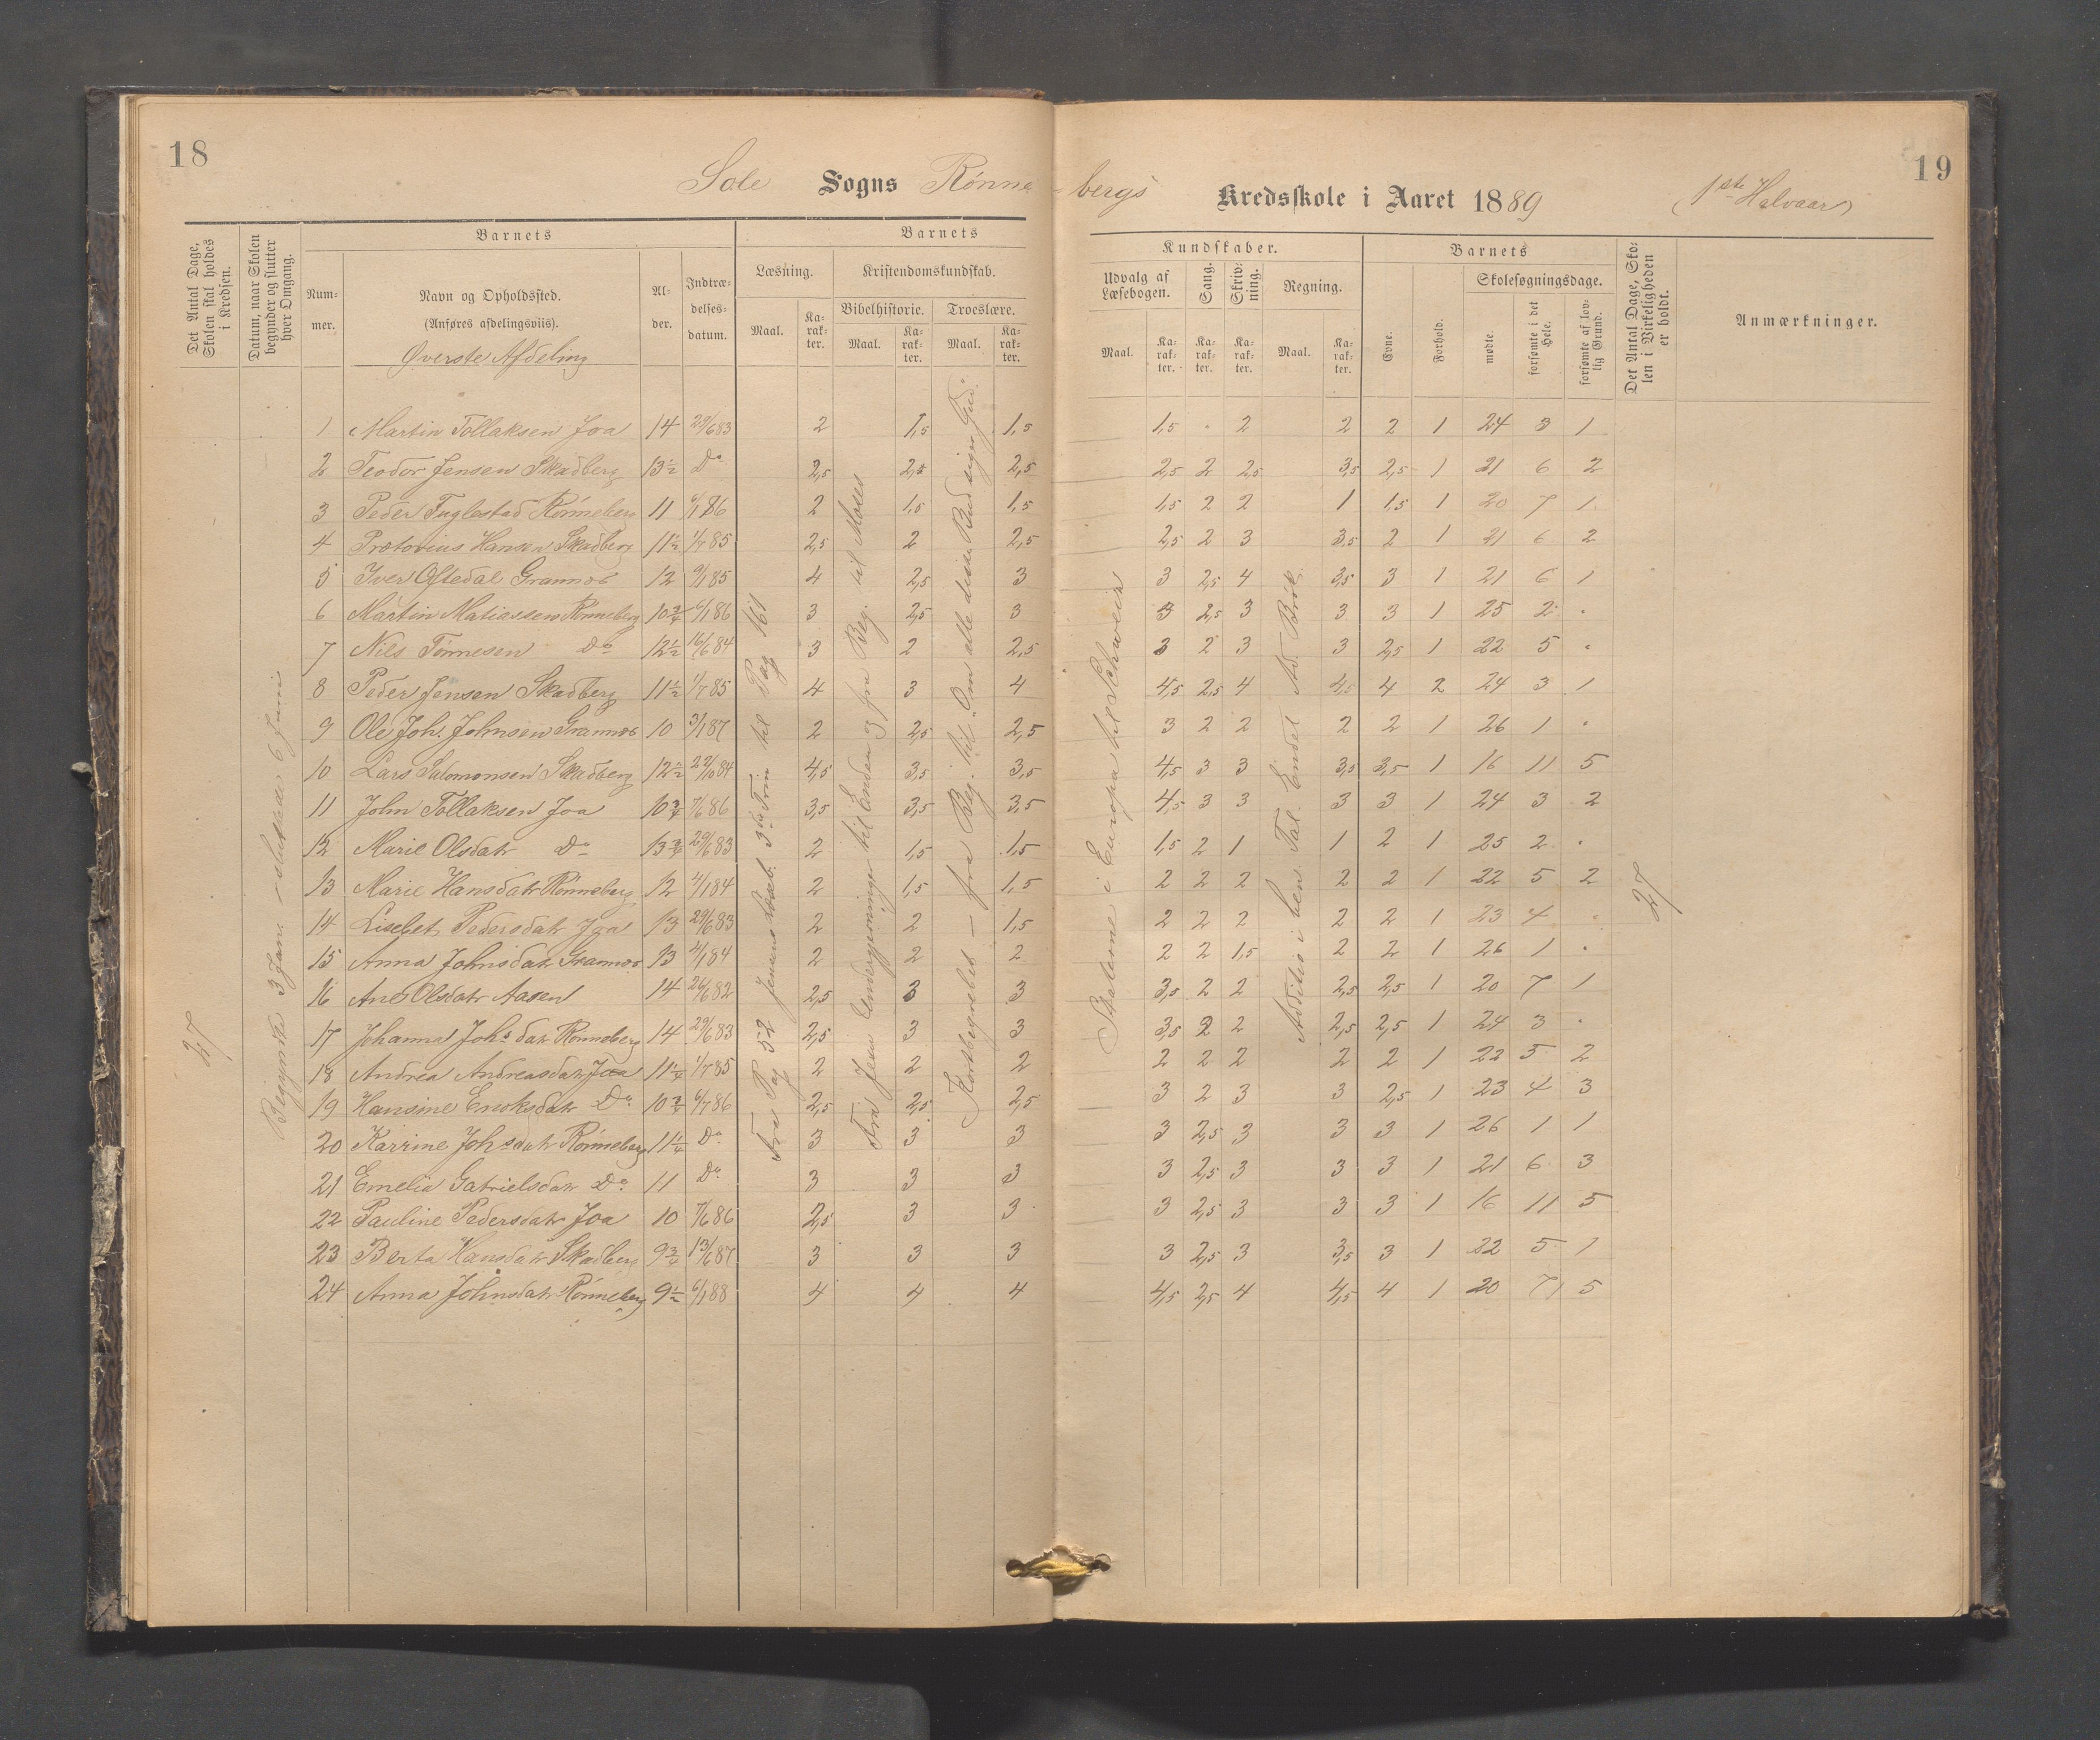 18
19
Sole Sogns Rönne-bergs Kredsskole i Aaret 1889 (1ste Halvaar)
Det Antal Dage, Skolen skal holdes i Kredsen.
Datum, naar Skolen begynder og slutter hver Omgang.
Barnets
Nummer.
Navn og Opholdssted.
(Anføres afdelingsviis).
Øverste Afdeling
Alder.
Indtrædelsesdatum.
Barnets
Læsning.
Maal.
Karakter.
Kristendomskundskab.
Bibelhistorie.
Maal.
Karakter.
Troeslære.
Maal.
Karakter.
Kundskaber.
Udvalg af Læsebogen.
Maal.
Karakter.
Sang.
Karakter.
Skrivning.
Karakter.
Regning.
Maal.
Karakter.
Barnets
Evne.
Forhold.
Skolesøgningsdage.
mødte.
forsømte i det Hele.
forsømte af lovlig Grund.
Det Antal Dage, Skolen i Virkeligheden er holdt.
Anmærkninger.
27
Begyndte 3 Janr - sluttede 6 Juni
Fra Pag 52 Jensens Læseb. 3die Trin til Pag 161
Til Enden og fra Beg. til Moses
fra Beg. til "Om alle disse Bud siger Gud"
Staterne i Europa til Schweix
Additio i ben. Tal Endel Ad. Brök
27
1 Martin Tollaksen Joa 14 29/683 2 1,5 1,5 1,5 . 2 2 2 1 24 3 1
2 Teodor Jensen Skadberg 13½ Do 2,5 2,5 2,5 2,5 2 2,5 3,5 2,5 1 21 6 2
3 Peder Fuglestad Rönneberg 11 6/186 2 1,5 1,5 1,5 2 2 1 1,5 1 20 7 1
4 Pretorius Hansen Skadberg 11½ 1/785 2,5 2 2,5 2,5 2 3 3,5 2 1 21 6 2
5 Iver Oftedal Grannes 12 9/185 4 2,5 3 3 2,5 4 3,5 3 1 21 6 1
6 Martin Matiassen Rönneberg 10¾ 6/186 3 2,5 3 3 2,5 3 3 3 1 25 2 .
7 Nils Tönnesen Do 12½ 16/684 3 2 2,5 3 2 3 3 2,5 1 22 5 .
8 Peder Jensen Skadberg 11½ 1/785 4 3 4 4,5 2,5 4 4,5 4 2 24 3 1
9 Ole Joh. Johnsen Grannes 10 3/187 2 2,5 2,5 3 2 2 2 2 1 26 1 .
10 Lars Salomonsen Skadberg 12½ 22/1084 4,5 3,5 3,5 4,5 3 3 3,5 3,5 1 16 11 5
11 John Tollaksen Joa 10¾ 7/686 3,5 3,5 3,5 4,5 3 3 3 3 1 24 3 2
12 Marie Olsdatr Do 13¾ 29/683 2 1,5 1,5 1,5 2 1 1 2 1 25 2 .
13 Marie Hansdatr Rönneberg 12 4/184 2 1,5 1,5 2 2 2 2 2 1 22 5 2
14 Lisebet Pedersdatr Joa 13 29/683 2 2 1,5 2 2 2 2 2 1 23 4 .
15 Anna Johnsdatr Grannes 13 4/184 2 2 2 2 2 1,5 2 2 1 26 1 .
16 Ane Olsdatr Aasen 14 26/682 2,5 3 3 3,5 2 2 2,5 2,5 1 20 7 1
17 Johanna Johs datr Rönneberg 14 29/683 2,5 3 3 3,5 2 2 2,5 2,5 1 24 3 .
18 Andrea Andreasdatr Joa 11¼ 1/785 2 2 2 2 2 2 2 2 1 22 5 2
19 Hansine Enoksdatr Do 10¾ 6/786 2,5 2,5 2,5 3 2 3 3 2,5 1 23 4 3
20 Karrine Johsdatr Rönneberg 11¼ Do 3 3 3 3 2,5 3 3 3 1 26 1 1
21 Emelia Gabrielsdatr Do 11 Do 3 3 3 3 2,5 3 3 3 1 21 6 3
22 Pauline Pedersdatr Joa 10 7/686 2,5 3 3 3 2,5 3 3 3 1 16 11 5
23 Berta Hansdatr Skadberg 9¾ 13/687 3 3 3 3 2,5 3 3,5 3 1 22 5 1
24 Anna Johnsdatr Rönneberg 9½ 6/188 4 4 4 4,5 2,5 4 4,5 4 1 20 7 5